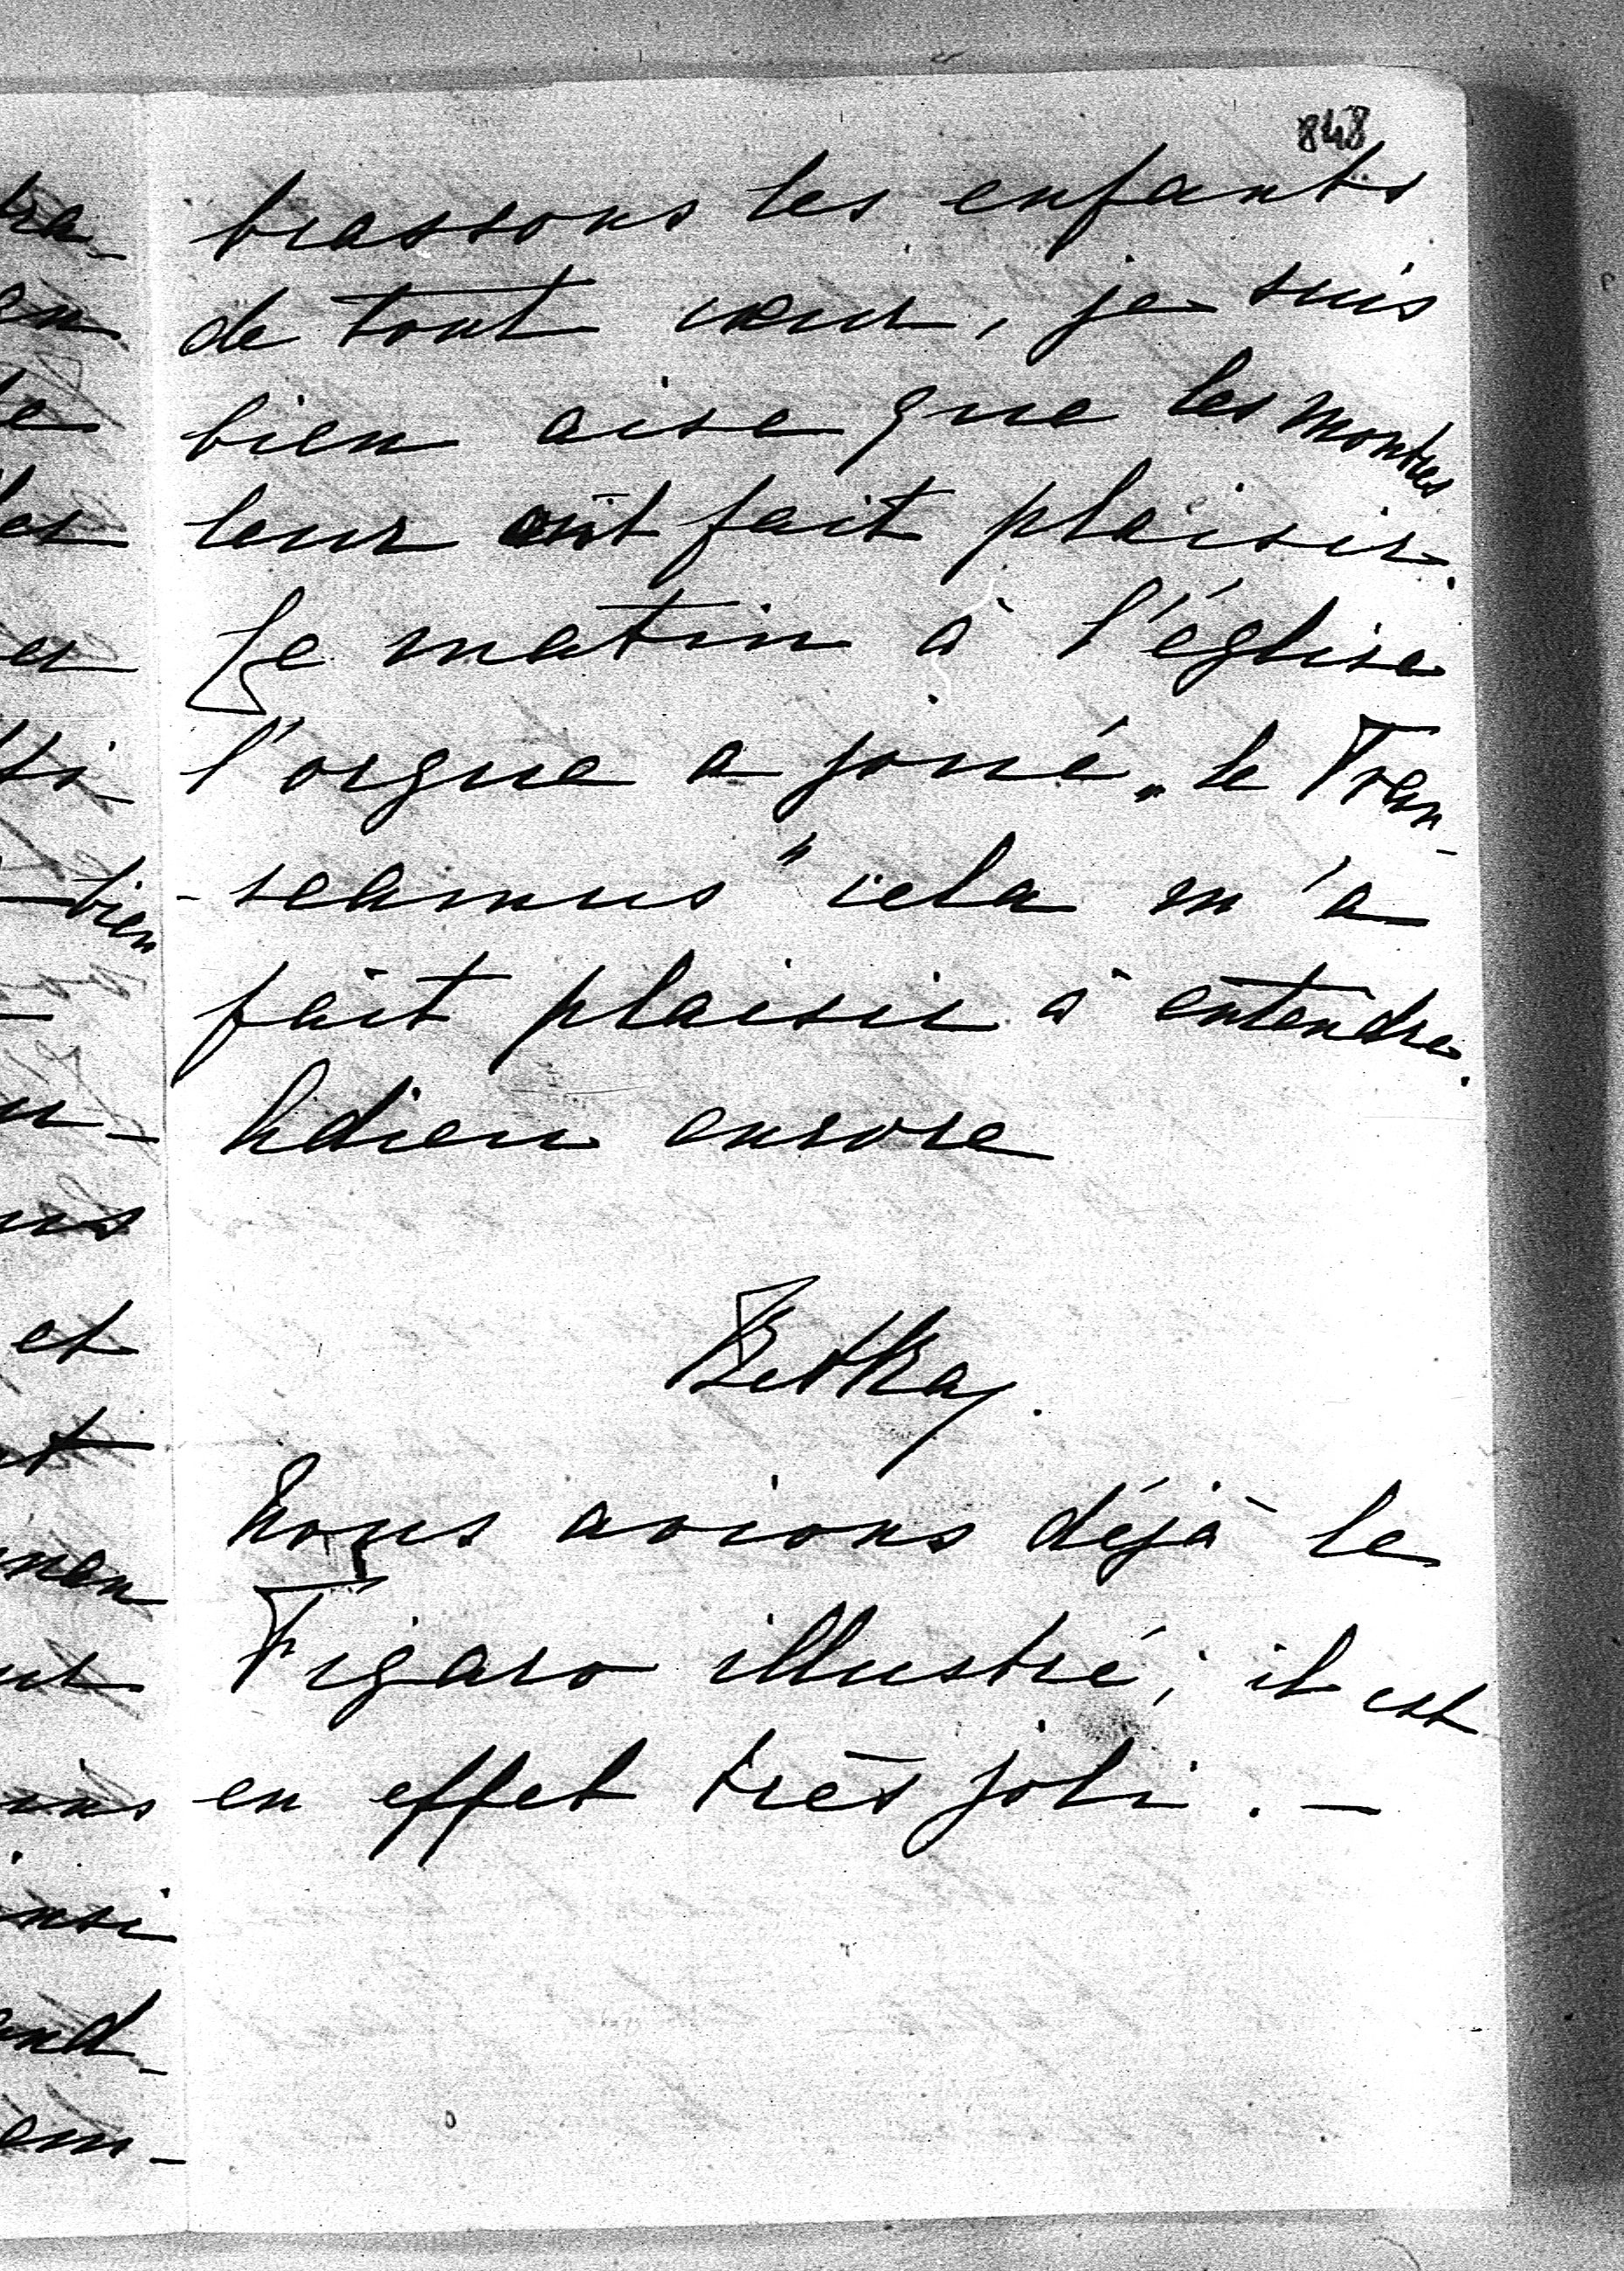 848
brassons les enfants
de tout cœur, je suis
bien aise que les montres
leur ont fait plaisir.
Le matin à l'église
l'orgue a joué „le Tran-
-seamus" cela m'a
fait plaisir à entendre.
Adieu encore
Betka.
Nous avions déjà le
Figaro illustré; il est
en effet très joli. —